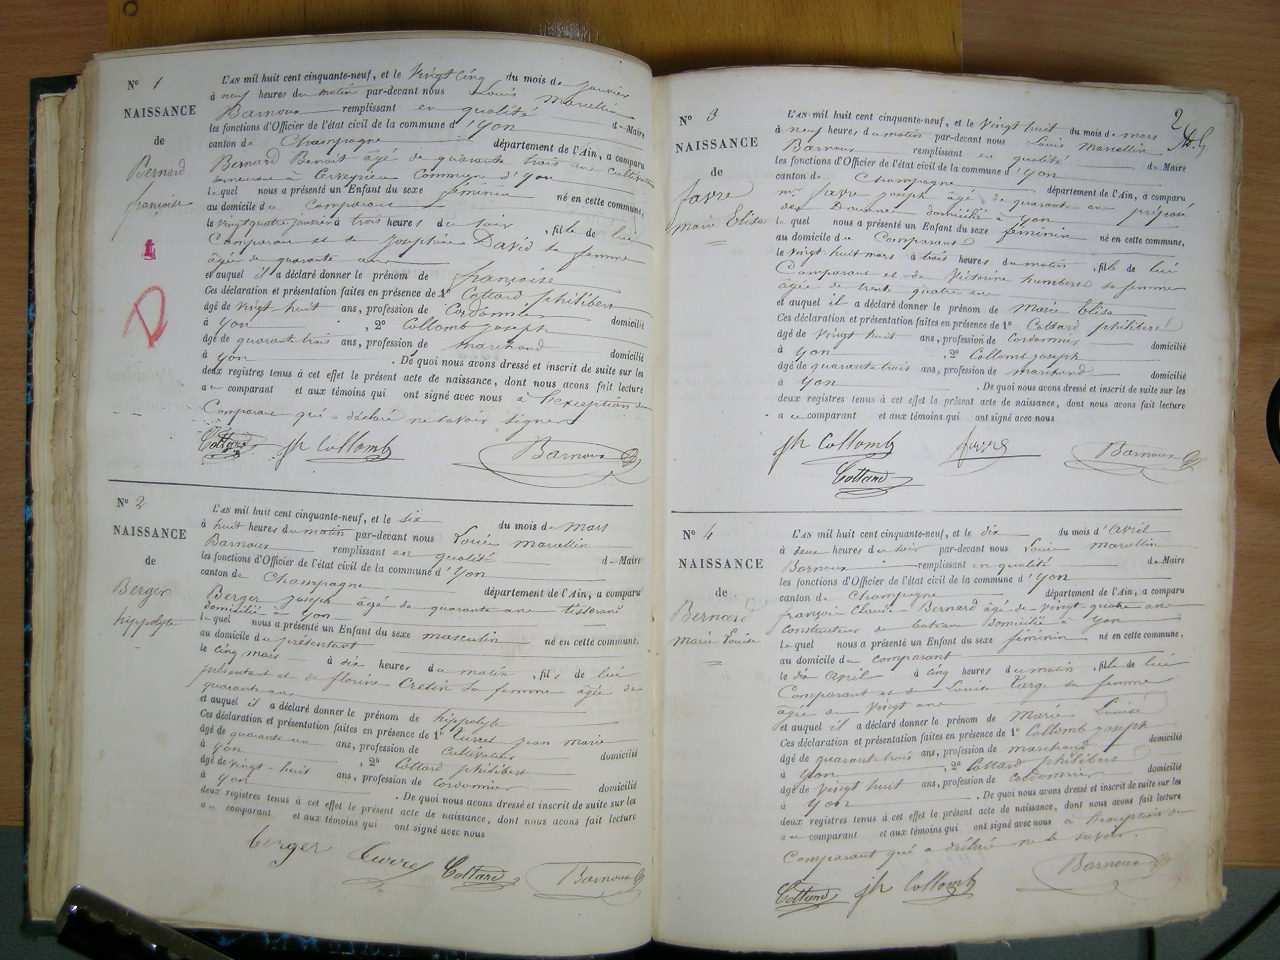 N° 1
NAISSANCE
de
Bernard
françoise
L'AN mil huit cent cinquante-neuf, et le vingt cinq du mois de janvier
à neuf heures du matin par-devant nous Louis Marcellin
Barnoux remplissant en qualité de Maire
les fonctions d'Officier de l'état civil de la commune d'Yon
canton de Champagne département de l'Ain, a comparu
Bernard Benoit âgé de quarante trois ans cultivateur
à Cerveyrieu Commune d'Yon
lequel nous a présenté un Enfant du sexe féminin né en cette commune,
au domicile du comparant
le vingt quatre janvier à trois heures du soir, fille de lui
Comparant et de Joséphine David sa femme
âgée de quarante ans
et auquel il a déclaré donner le prénom de françoise
Ces déclaration et présentation faites en présence de 1° Cottard philibert
âgé de vingt huit ans, profession de Cordonnier domicilié
à Yon, 2° Collomb joseph
âgé de quarante trois ans, profession de marchand domicilié
à Yon. De quoi nous avons dressé et inscrit de suite sur les
deux registres tenus à cet effet le présent acte de naissance, dont nous avons fait lecture
au comparant et aux témoins qui ont signé avec nous à l'exception du
Comparant qui a déclaré ne savoir signer
Cottard jh Collomb Barnoux
N° 2
NAISSANCE
de
Berger
hippolyte
L'AN mil huit cent cinquante-neuf, et le six du mois de mars
à huit heures du matin par-devant nous Louis Marcellin
Barnoux remplissant en qualité de Maire
les fonctions d'Officier de l'état civil de la commune d'Yon
canton de Champagne département de l'Ain, a comparu
Berger joseph âgé de quarante ans tisserand
domicilié à Yon
lequel nous a présenté un Enfant du sexe masculin né en cette commune,
au domicile du présentant
le cinq mars à dix heures du matin, fils de lui
présentant et de florine Cretin sa femme âgée de
quarante ans
et auquel il a déclaré donner le prénom de hippolyte
Ces déclaration et présentation faites en présence de 1° Currel jean marie
âgé de quarante un ans, profession de Cultivateur domicilié
à Yon, 2° Cottard philibert
âgé de vingt-huit ans, profession de Cordonnier domicilié
à Yon. De quoi nous avons dressé et inscrit de suite sur les
deux registres tenus à cet effet le présent acte de naissance, dont nous avons fait lecture
au comparant et aux témoins qui ont signé avec nous
Berger Currel Cottard Barnoux
2
N° 3
NAISSANCE
de
favre
marie Elisa
L'AN mil huit cent cinquante-neuf, et le vingt huit du mois de mars
à neuf heures du matin par-devant nous Louis Marcellin
Barnoux remplissant en qualité de Maire
les fonctions d'Officier de l'état civil de la commune d'Yon
canton de Champagne département de l'Ain, a comparu
mr favre joseph âgé de quarante un préposé
des Douanes domicilié à Yon
lequel nous a présenté un Enfant du sexe féminin né en cette commune,
au domicile du Comparant
le vingt huit mars à trois heures du matin, fille de lui
Comparant et de Victorine humbert sa femme
âgée de trente quatre ans
et auquel il a déclaré donner le prénom de Marie Elisa
Ces déclaration et présentation faites en présence de 1° Cottard philibert
âgé de vingt huit ans, profession de Cordonnier domicilié
à Yon, 2° Collomb joseph
âgé de quarante trois ans, profession de marchand domicilié
à Yon. De quoi nous avons dressé et inscrit de suite sur les
deux registres tenus à cet effet le présent acte de naissance, dont nous avons fait lecture
au comparant et aux témoins qui ont signé avec nous
jh Collomb favre Barnoux
Cottard
N° 4
NAISSANCE
de
Bernard
marie Louise
L'AN mil huit cent cinquante-neuf, et le dix du mois d'avril
à deux heures du soir par-devant nous Louis Marcellin
Barnoux remplissant en qualité de Maire
les fonctions d'Officier de l'état civil de la commune d'Yon
canton de Champagne département de l'Ain, a comparu
françois Claude Bernard âgé de vingt quatre ans
constructeur de bateaux domicilié à Yon
lequel nous a présenté un Enfant du sexe féminin né en cette commune,
au domicile du comparant
le dix avril à cinq heures du matin, fille de lui
Comparant et de Louise sa femme
âgée de vingt ans
et auquel il a déclaré donner le prénom de Marie Louise
Ces déclaration et présentation faites en présence de 1° Collomb joseph
âgé de quarante trois ans, profession de marchand domicilié
à Yon, 2° Cottard philibert
âgé de vingt huit ans, profession de Cordonnier domicilié
à Yon. De quoi nous avons dressé et inscrit de suite sur les
deux registres tenus à cet effet le présent acte de naissance, dont nous avons fait lecture
au comparant et aux témoins qui ont signé avec nous à l'exception du
Comparant qui a déclaré ne le savoir.
Cottard jh Collomb Barnoux